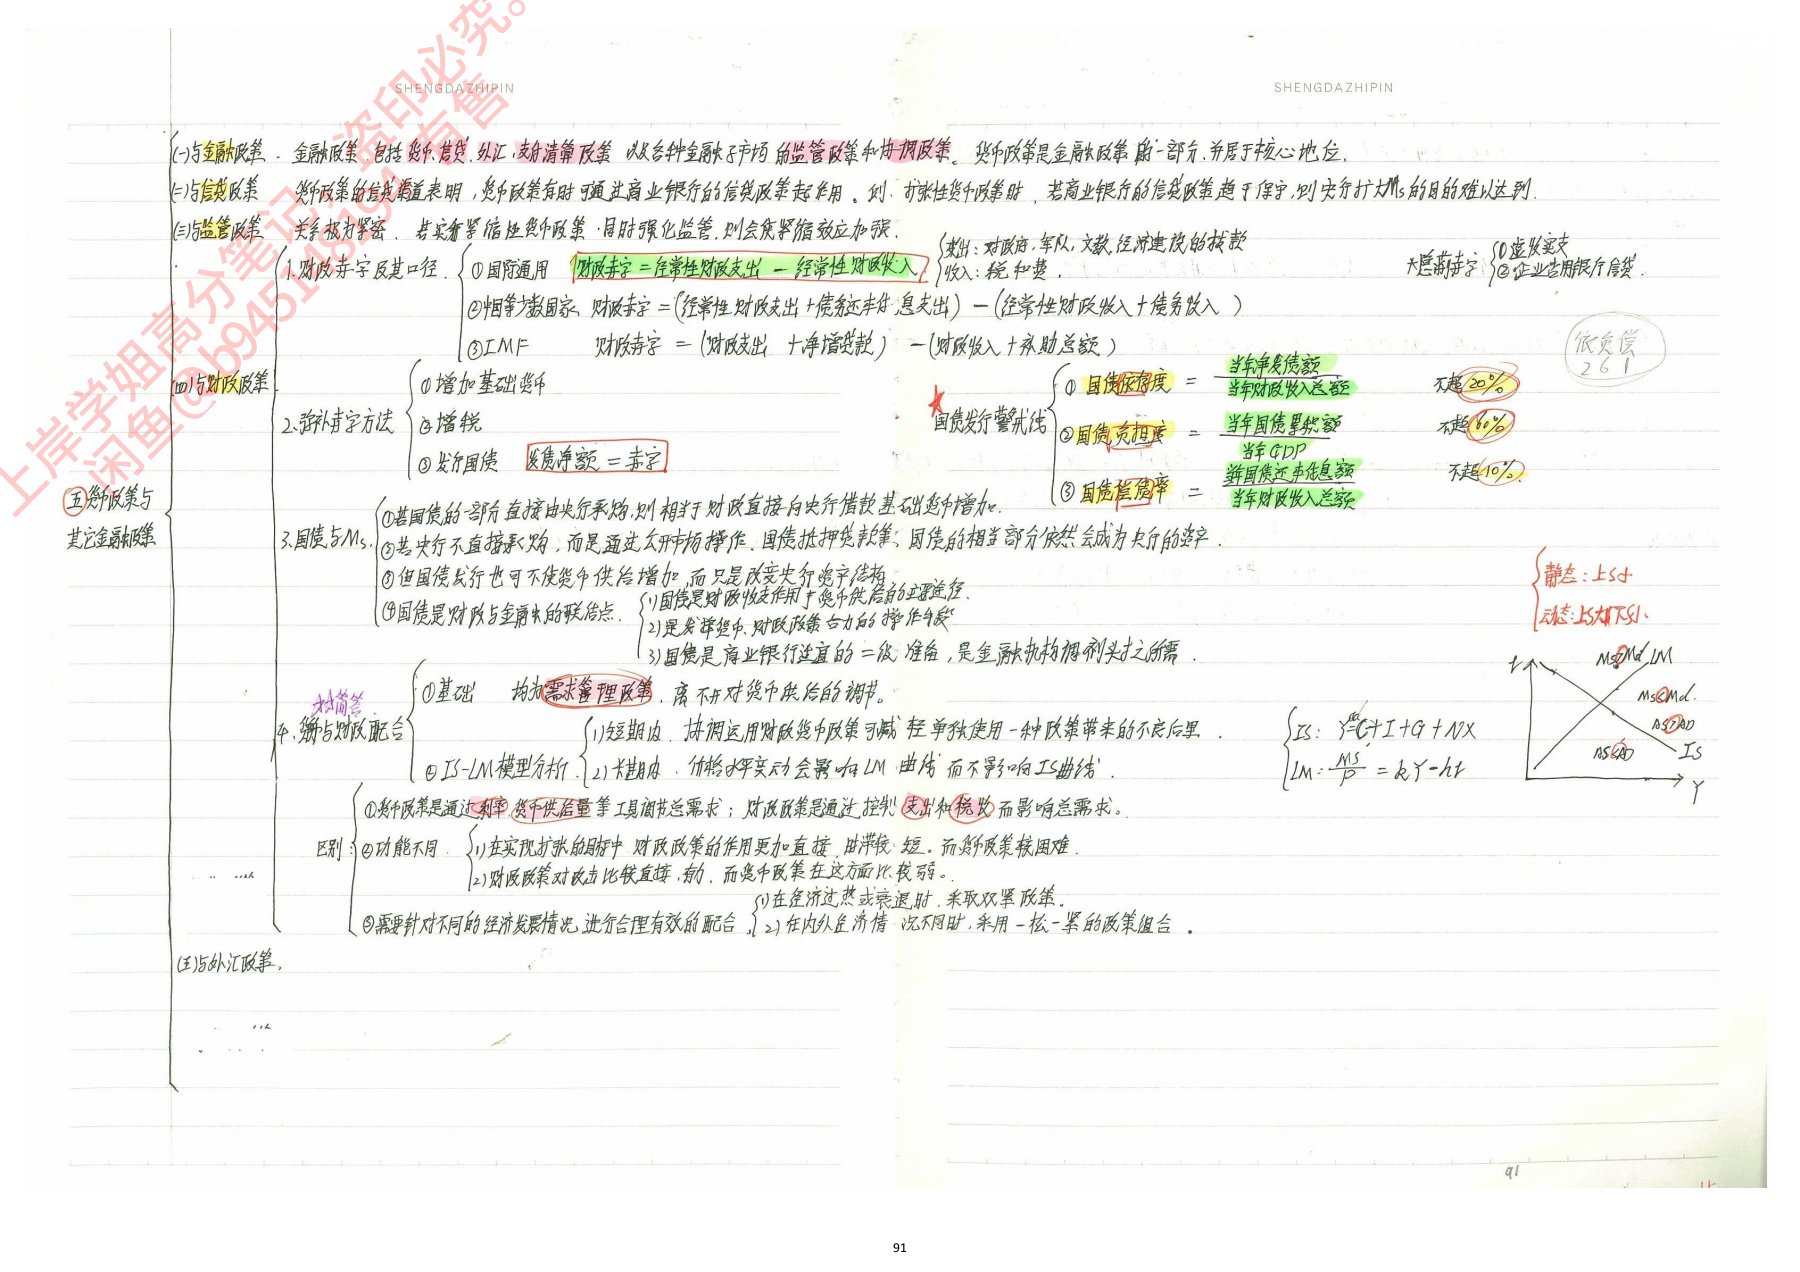 SHENGDAZHIPIN
SHENGDAZHIPIN
上岸学姐高分笔记，盗印必究。
闲鱼@b94514819t 有售
㊄货币政策与其它金融政策
(一)与金融政策. 金融政策包括货币、信贷、外汇、支付清算政策以及各种金融子市场的监管政策和协调政策。货币政策是金融政策的一部分,并居于核心地位.
(二)与信贷政策 货币政策的信贷渠道表明,货币政策有时可通过商业银行的信贷政策起作用。例:扩张性货币政策时,若商业银行的信贷政策趋于保守,则央行扩大Ms的目的难以达到.
(三)与监管政策 关系极为紧密. 若实行紧缩性货币政策,同时强化监管,则会使紧缩效应加强.
(四)与财政政策
1.财政赤字及其口径.
①国际通用 财政赤字=经常性财政支出-经常性财政收入
支出:对政府,军队,文教,经济建设的拨款
收入:税和费.
大隐蔽赤字 ①虚收实支
②企业占用银行信贷.
②中国等少数国家 财政赤字=(经常性财政支出+债务还本付息支出)-(经常性财政收入+债务收入)
③IMF 财政赤字=(财政支出+净增贷款)-(财政收入+补助总额)
2.弥补赤字方法
①增加基础货币
②增税
③发行国债 发债净额=赤字
★国债发行警戒线
①国债依存度=当年净发债额/当年财政收入总额 不超20%
②国债负担率=当年国债累积额/当年GDP 不超60%
③国债偿债率=当年国债还本付息额/当年财政收入总额 不超10%.
依负偿
261
3.国债与Ms.
①若国债的一部分直接由央行承购,则相当于财政直接向央行借款,基础货币增加.
②若央行不直接承购,而是通过公开市场操作、国债抵押贷款等,国债的相当部分依然会成为央行的资产.
③但国债发行也可不使货币供给增加,而只是改变央行资产结构.
④国债是财政与金融的联结点.
1)国债是财政收支作用于货币供给的主要途径.
2)是发挥货币、财政政策合力的操作手段
3)国债是商业银行适宜的二级准备,是金融机构调剂头寸之所需.
静态:上S小
动态:上S大下S小.
4.货币与财政配合
①基础 均为需求管理政策,离不开对货币供给的调节。
②IS-LM模型分析
1)短期内,协调运用财政货币政策可减轻单独使用一种政策带来的不良后果.
2)长期内,价格水平变动会影响LM曲线而不影响IS曲线.
IS: Y=C+I+G+NX
LM: MS/P=kY-hi
i
Ms>Md
LM
Ms<Md.
AS>AD
AS<AD
IS
Y
区别:
①货币政策是通过利率,货币供给量等工具调节总需求;财政政策是通过控制支出和税收而影响总需求。
②功能不同.
1)在实现扩张的目标中,财政政策的作用更加直接,时滞较短。而货币政策较困难.
2)财政政策对政击比较直接,有力,而货币政策在这方面比较弱。
③需要针对不同的经济发展情况,进行合理有效的配合.
1)在经济过热或衰退时,采取双紧政策.
2)在内外经济情况不同时,采用一松一紧的政策组合.
(五)与外汇政策.
91
91